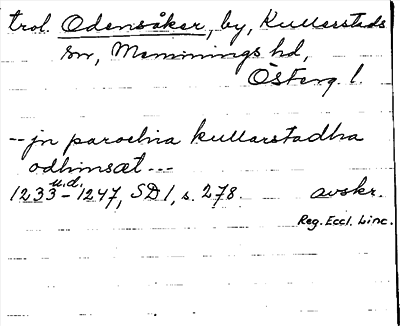 trol. Odensåker, by, Kullerstads
sn, Memmings hd,
Österg. l.
-- jn parochia kullarstadha
odhinsæt ---
u.d.
1233-1247, SD 1, s. 278. avskr.
Reg. Eccl. Linc.